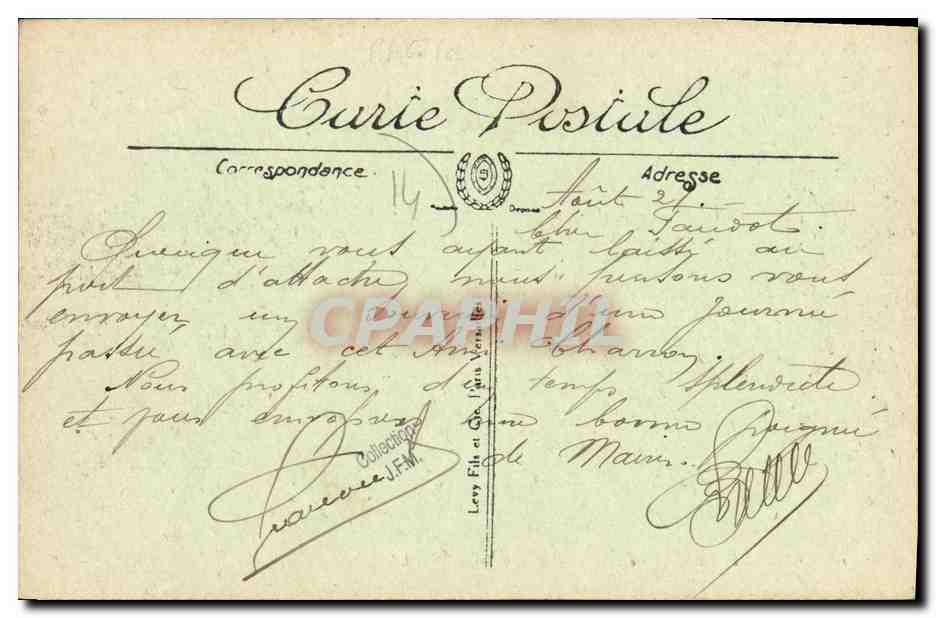 Carte Postale
Correspondance.
Adresse
14
Août 27.
Cher
Quoique vous ayant laissé au
port d'attache, nous pensons vous
envoyer un souvenir d'une journée
passée avec cet Ami Charron.
Nous profitons du temps splendide
et vous envoyons une bonne poignée
de Mains.
Collection
J.F.M.
Levy Fils et Cie, Paris Versailles
CPAPHIL